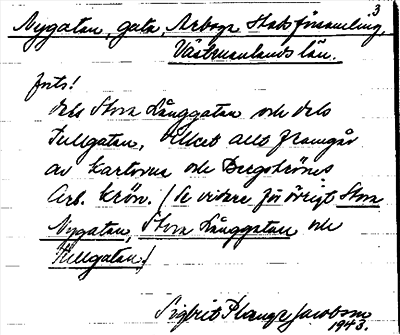 3
Nygatan, gata, Arboga Stadsförsamling,
Västmanlands län.
forts!
dels Stora Långgatan och dels
Tullgatan, vilket allt framgår
av kartorna och Bergströms
Arb. Krön. (Se vidare för övrigt Stora
Nygatan, Stora Långgatan och
Tullgatan.)
Sigfrid Jacobsson
1943.